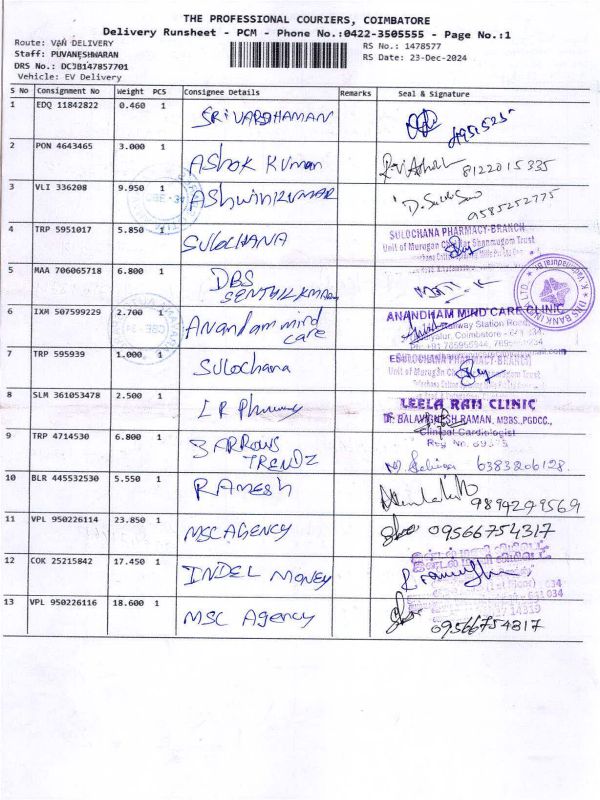 THE PROFESSIONAL COURIERS, COIMBATORE
Delivery Runsheet - PCM - Phone No.:0422-3505555 - Page No.:1
Route: VAN DELIVERY
Staff: PUVANESHWARAN
DRS No.: DCJB147857701
Vehicle: EV Delivery
RS No.: 1478577
RS Date: 23-Dec-2024
S No Consignment No Weight PCS Consignee Details Remarks Seal & Signature
1 EDQ 11842822 0.460 1 SRI VARDHAMAN
2 PON 4643465 3.000 1 Ashok Kumar 8122015335
3 VLI 336208 9.950 1 ASHWINKUMAR 9585252775
4 TRP 5951017 5.850 1 SULOCHANA
SULOCHANA PHARMACY-BRANCH
Unit of Murugan Shanmugam Trust
5 MAA 706065718 6.800 1 DBS
SENTHILKUMAR
DBS BANK LTD
6 IXM 507599229 2.700 1 Anandam mind
care
ANANDHAM MIND CARE CLINIC
Railway Station Road
Coimbatore
7 TRP 595939 1.000 1 Sulochana
SULOCHANA PHARMACY-BRANCH
Unit of Murugan Shanmugam Trust
8 SLM 361053478 2.500 1 LR Pharmacy
LEELA RAM CLINIC
Dr. BALAVIGNESH RAMAN, MBBS.,PGDCC.,
Clinical Cardiologist
Reg No.
9 TRP 4714530 6.800 1 3 ARROWS
TRENDZ
6383206128
10 BLR 445532530 5.550 1 RAMESH 9894279569
11 VPL 950226114 23.850 1 MSC AGENCY 09566754317
12 COK 25215842 17.450 1 INDEL MONEY
13 VPL 950226116 18.600 1 MSC Agency 09566754317